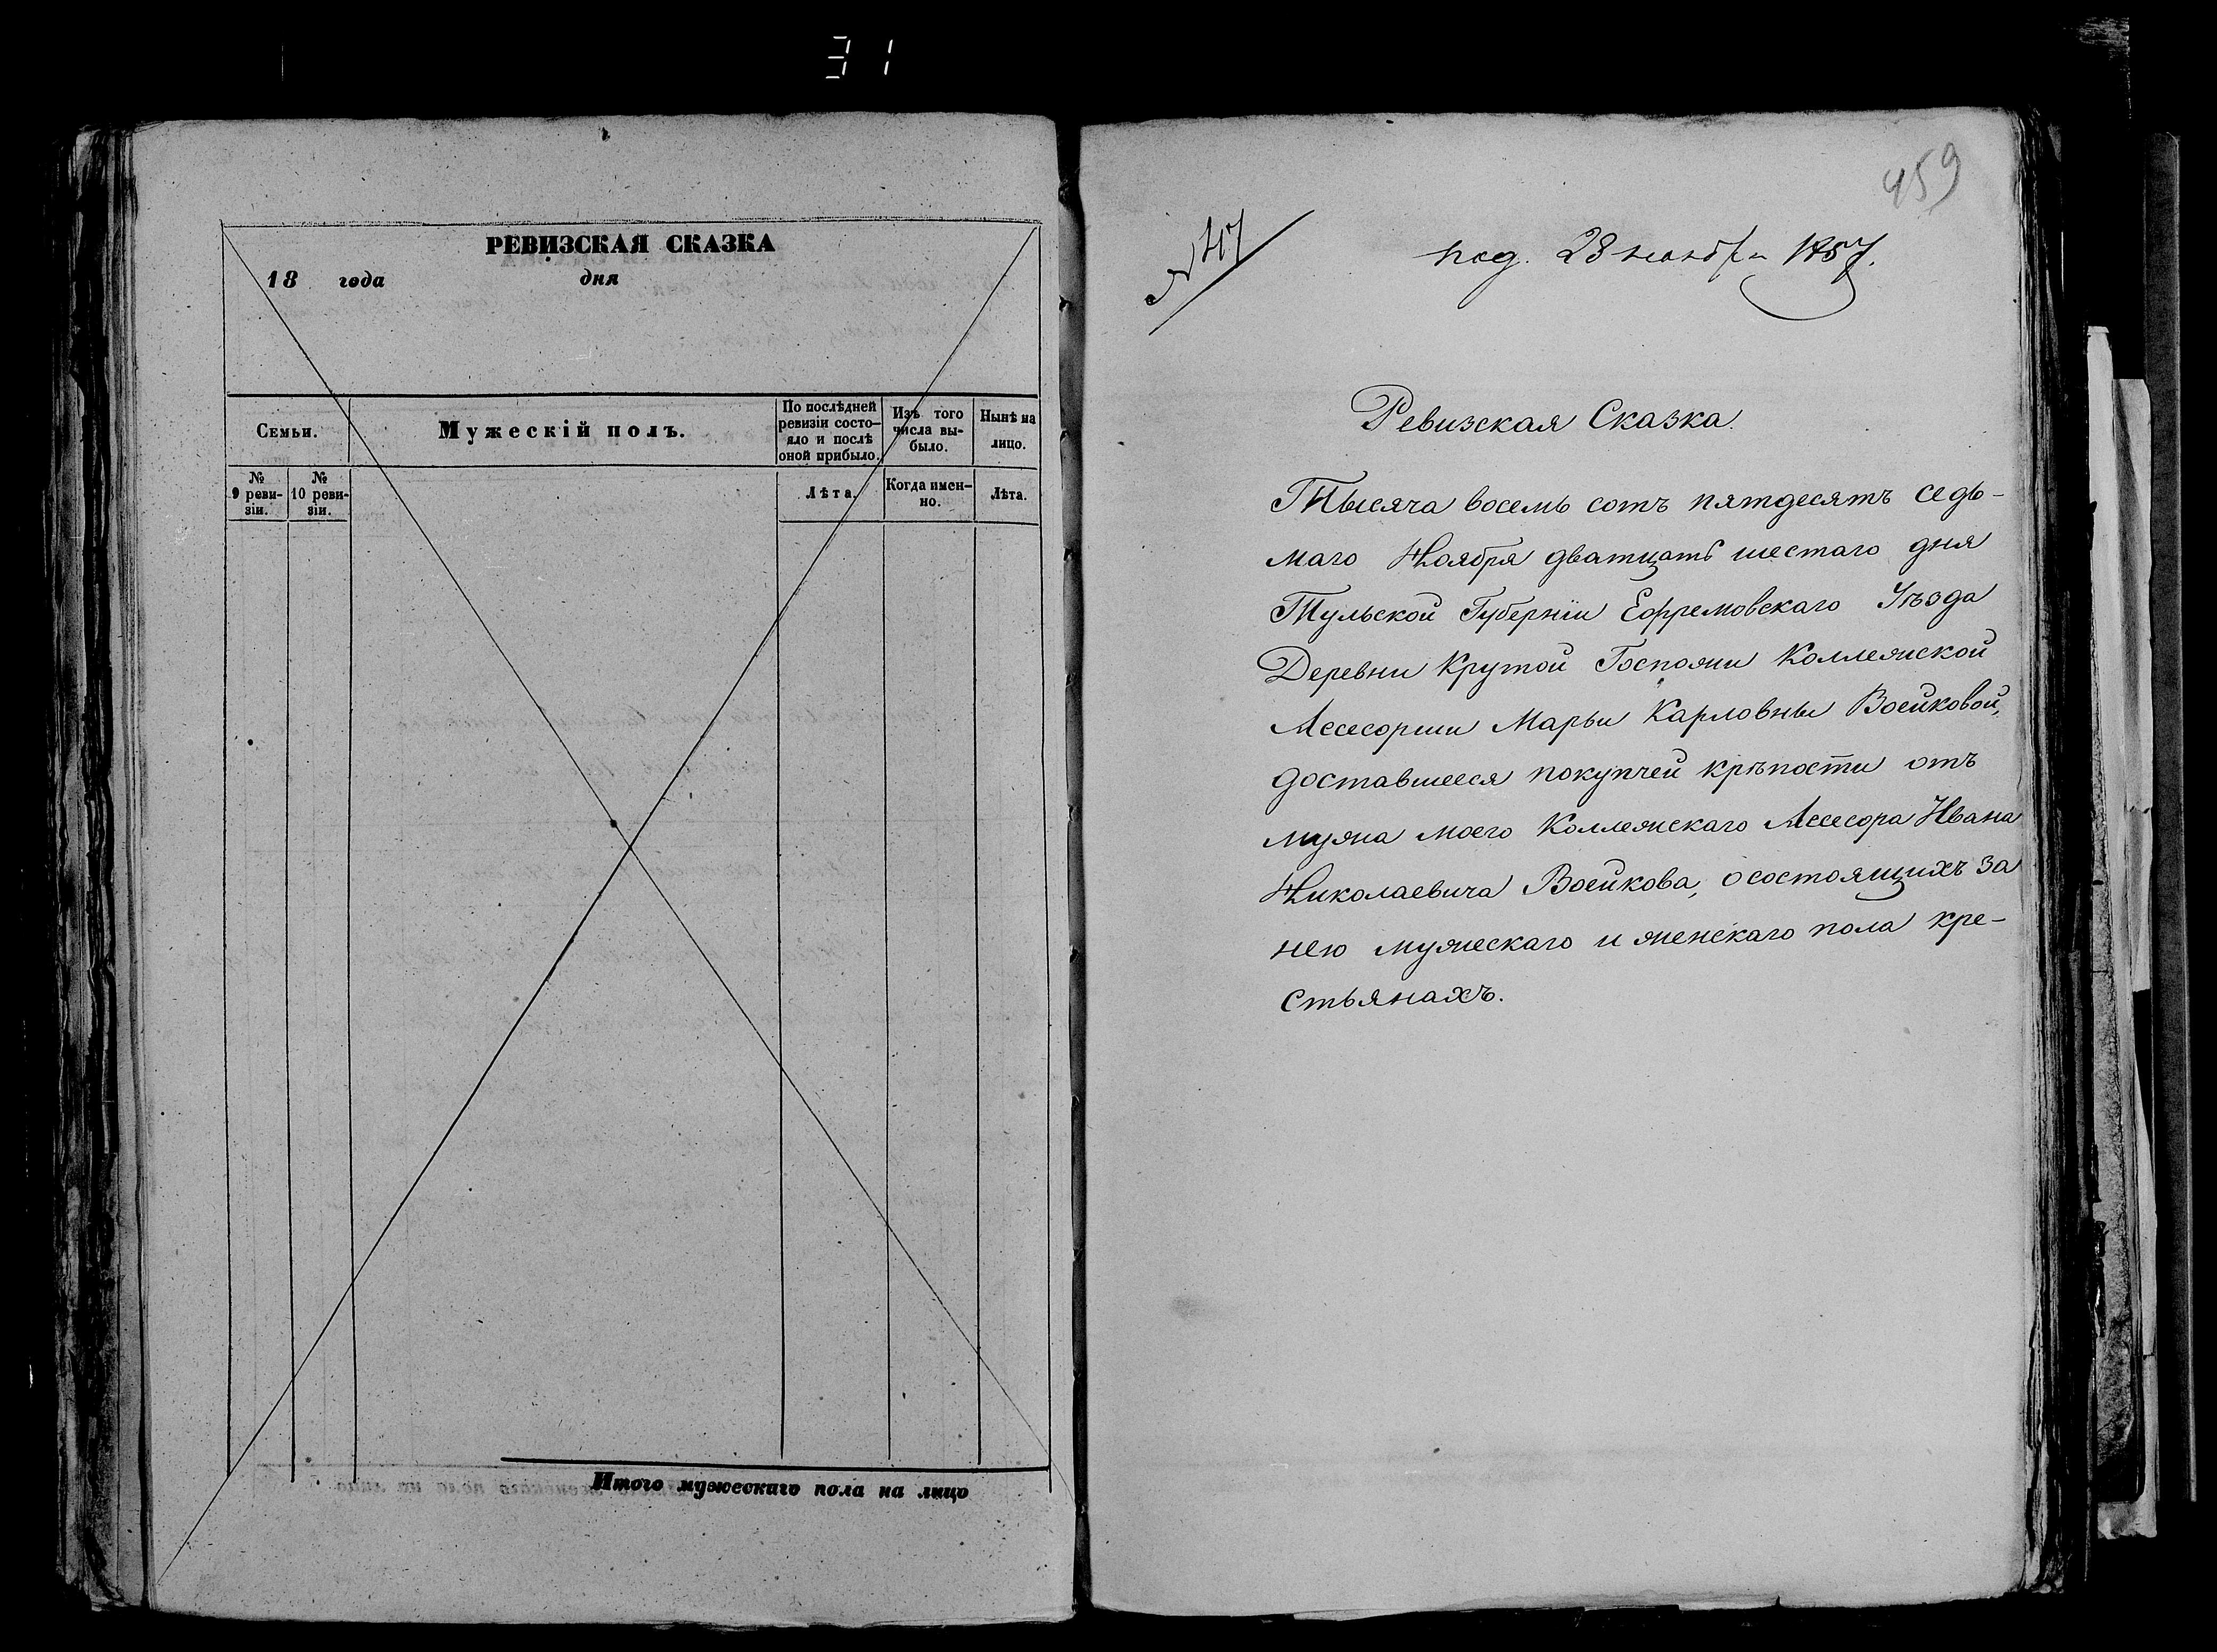 31
РЕВИЗСКАЯ СКАЗКА
18 года дня
Семьи.
Мужескій полъ.
По послѣдней
ревизіи состо-
яло и послѣ
оной прибыло.
Изъ того
числа вы-
было.
Нынѣ на
лицо.
№
9 реви-
зіи.
№
10 реви-
зіи.
Лѣта.
Когда имен-
но.
Лѣта.
Итого мужескаго пола на лицо
459
№ 417
под. 28 ноября 1857.
Ревизская Сказка.
Тысяча восемь сотъ пятдесятъ седь-
маго Ноября дватцать шестаго дня
Тульской Губерніи Ефремовскаго Уѣзда
Деревни Крутой Госпожи Коллежской
Ассесорши Марьи Карловны Воейковой,
доставшееся покупчей крѣпости отъ
мужа моего Коллежскаго Ассесора Ивана
Николаевича Воейкова, о состоящихъ за
нею мужескаго и женскаго пола кре-
стьянахъ.